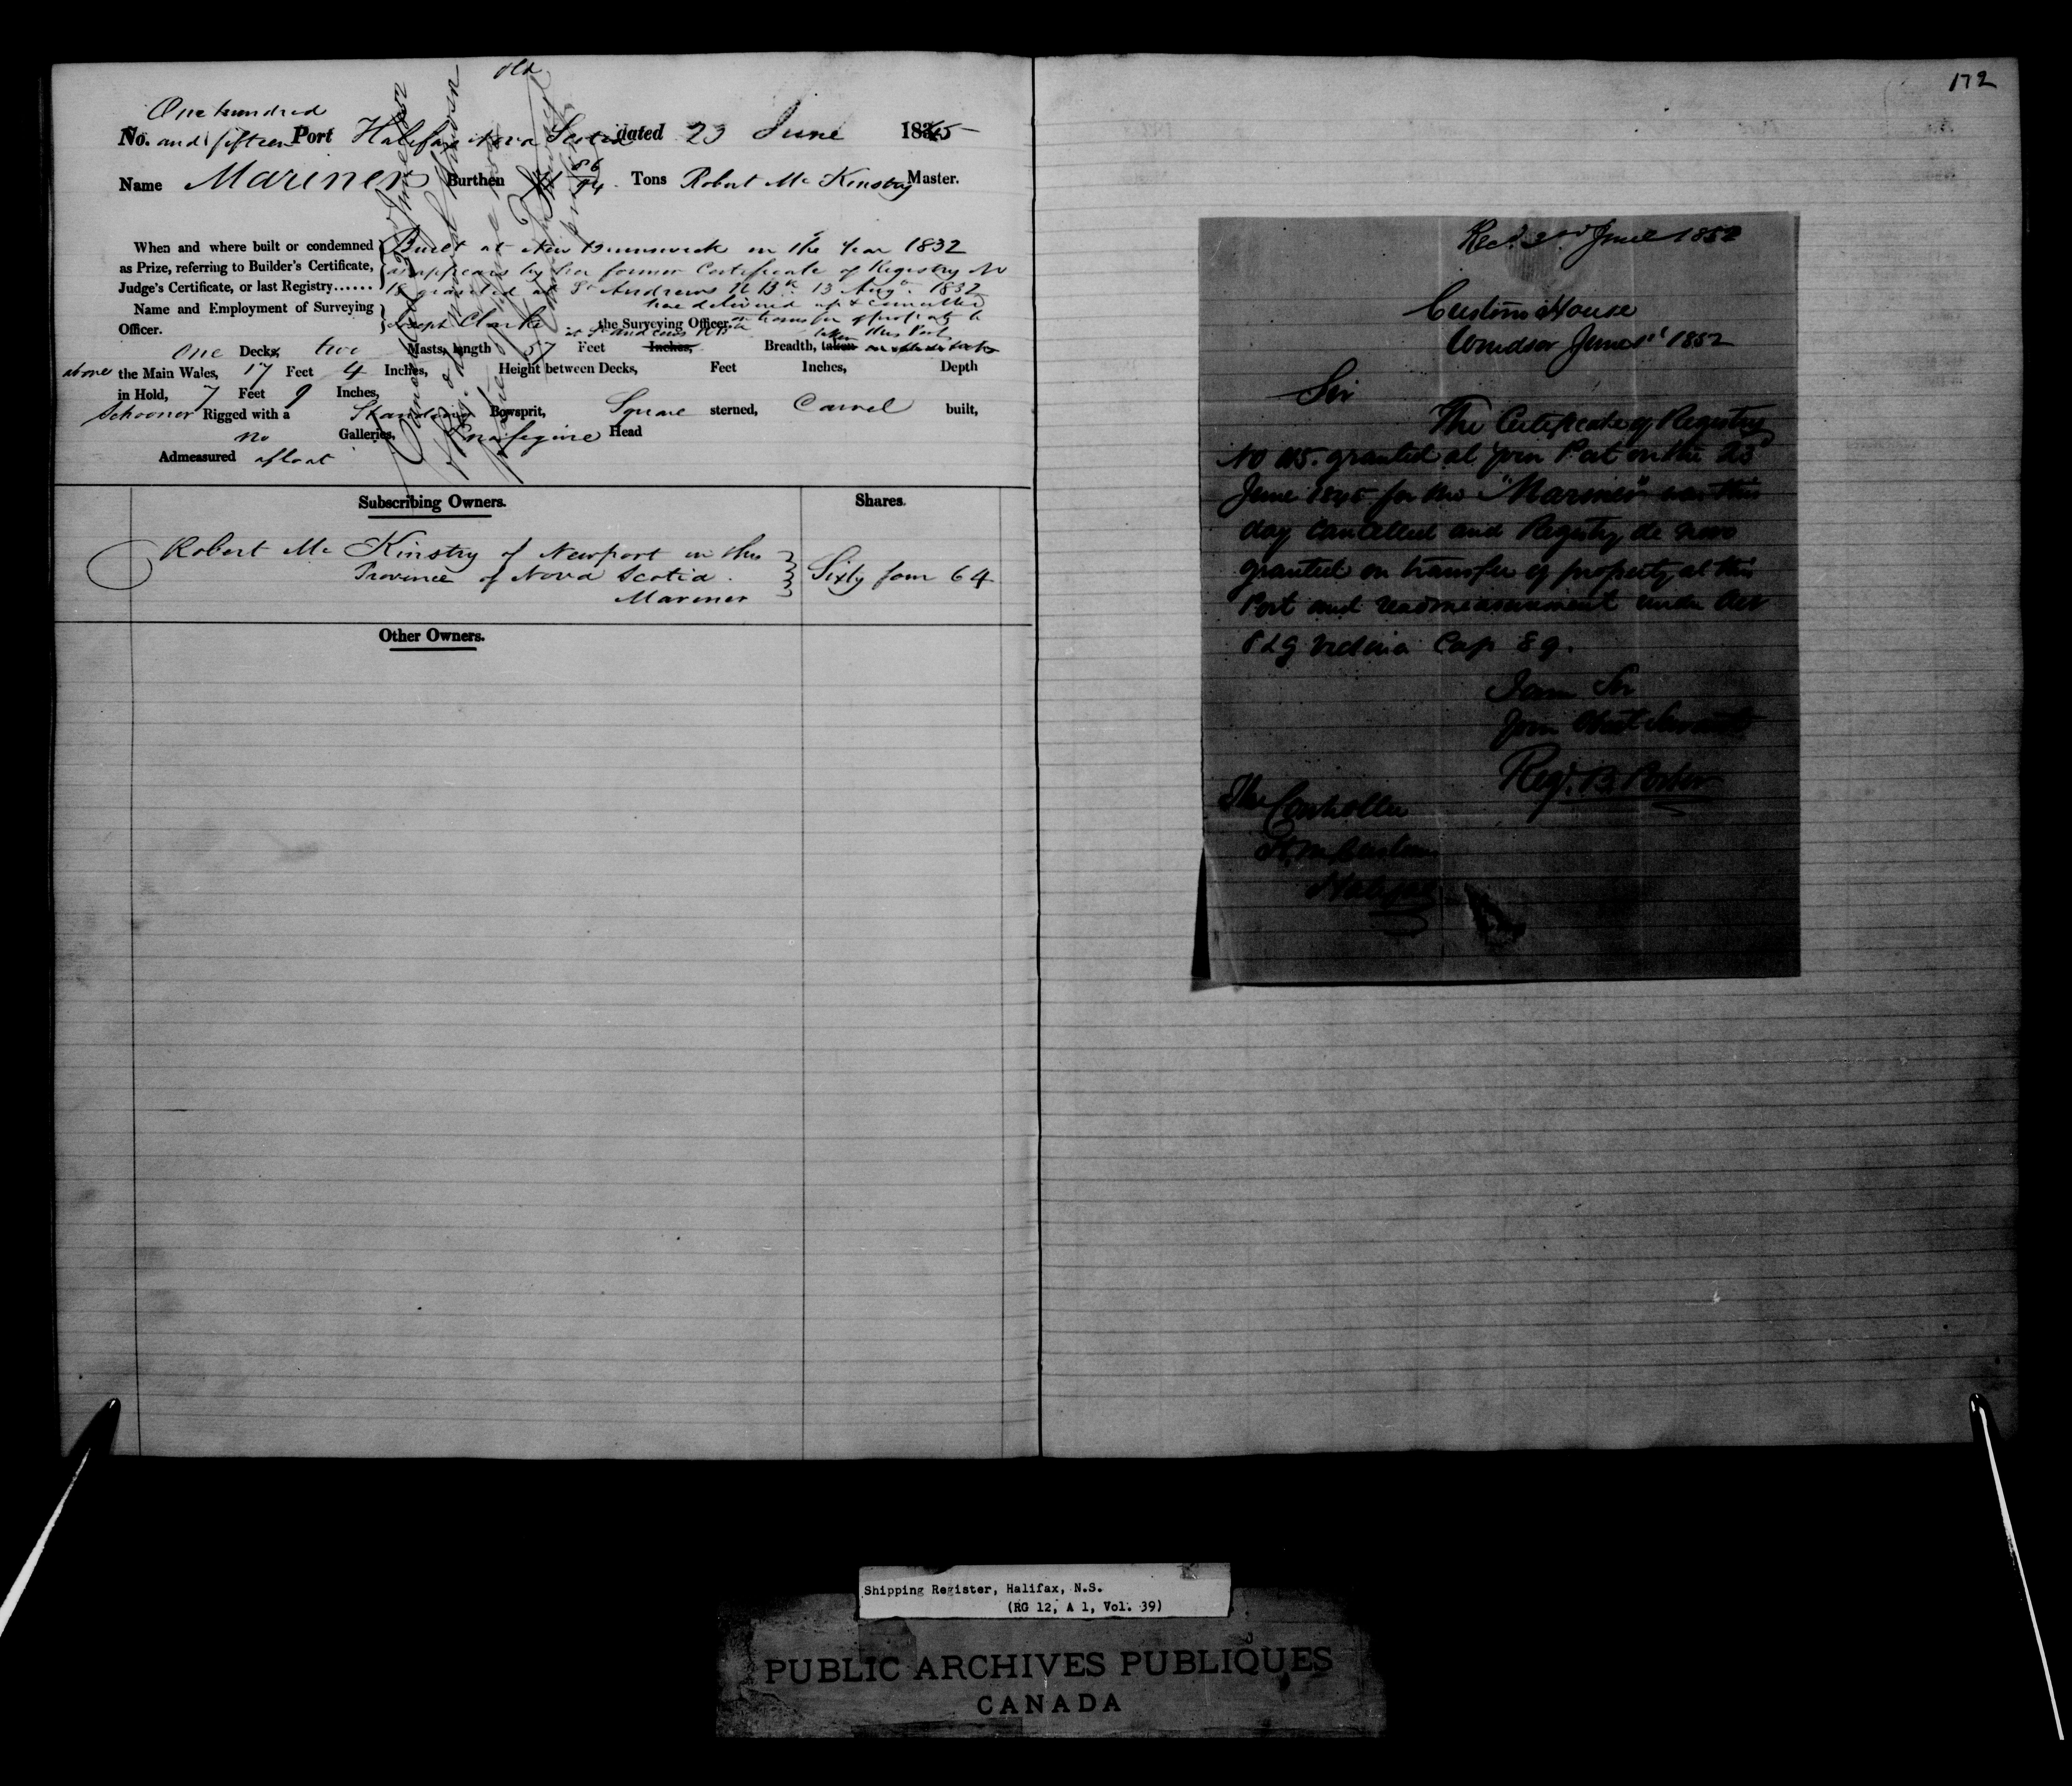 172
old
One hundred
No. and fifteen Port Halifax Nova Scotia dated 23 June 1845
Name Mariner Burthen 86/94 Tons Robert Mc Kinstry Master.
When and where built or condemned as Prize, referring to Builder's Certificate, Judge's Certificate, or last Registry......
Built at New Brunswick in the Year 1832
as appears by her former Certificate of Registry No
18 granted at St Andrews N Bk 13 Augt. 1832
now delivered up & cancelled
on transfer of property to
this Port
Name and Employment of Surveying Officer.
Joseph Clarke the Surveying Officer
One Decks, two Masts, length 57 Feet Inches, Breadth, taken
above the Main Wales, 17 Feet 4 Inches, Height between Decks, Feet Inches, Depth
in Hold, 7 Feet 9 Inches,
Schooner Rigged with a Standing Bowsprit, Square sterned, Carvel built,
no Galleries, Head
Admeasured afloat
Subscribing Owners. Shares.
Robert Mc Kinstry of Newport in the
Province of Nova Scotia.
Mariner
Sixty four 64
Other Owners.
Recd. 2nd June 1852
Customs House
Windsor June 1st 1852
Sir
The Certificate of Registry
No 115. granted at your Port on the 23
June 1845 for the "Mariner" was this
day cancelled and Registry de novo
granted on transfer of property at this
Port and readmeasurement under Act
8 & 9 Victoria Cap 89.
I am Sir
Your Obedt Servant
Regd. B. Porter
The Controller
H, M, Customs
Halifax
Shipping Register, Halifax, N.S.
(RG 12, A 1, Vol. 39)
PUBLIC ARCHIVES PUBLIQUES
CANADA